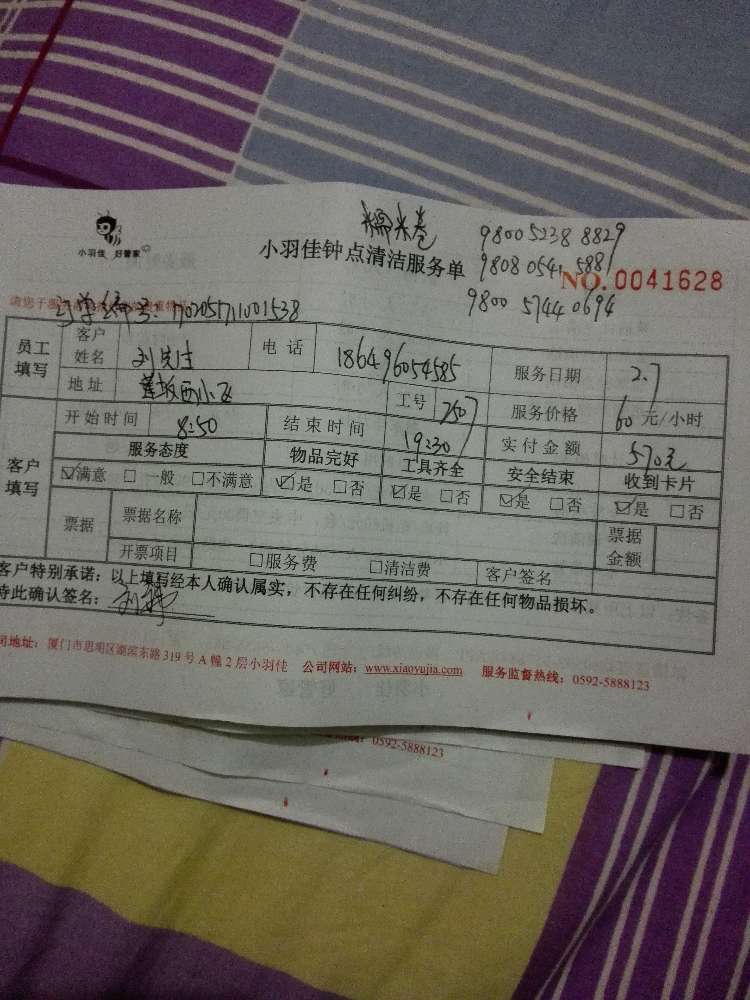 糯米卷
9800 5238 8829
小羽佳 好管家
小羽佳钟点清洁服务单
9808 0541 5881
NO. 0041628
9800 5744 0694
170205711001538
员工填写 客户姓名 刘先生 电话 186496054585 服务日期 2.7
地址 莲坂西小区 工号 7507 服务价格 60 元/小时
客户填写 开始时间 8:50 结束时间 19:30 实付金额 570元
服务态度 物品完好 工具齐全 安全结束 收到卡片
☑满意 □一般 □不满意 ☑是 □否 ☑是 □否 ☑是 □否 ☑是 □否
票据 票据名称 票据金额
开票项目 □服务费 □清洁费 客户签名
客户特别承诺：以上填写经本人确认属实，不存在任何纠纷，不存在任何物品损坏。
特此确认签名：
司地址：厦门市思明区湖滨东路319号A幢2层小羽佳 公司网站：www.xiaoyujia.com 服务监督热线：0592-5888123
0592-5888123